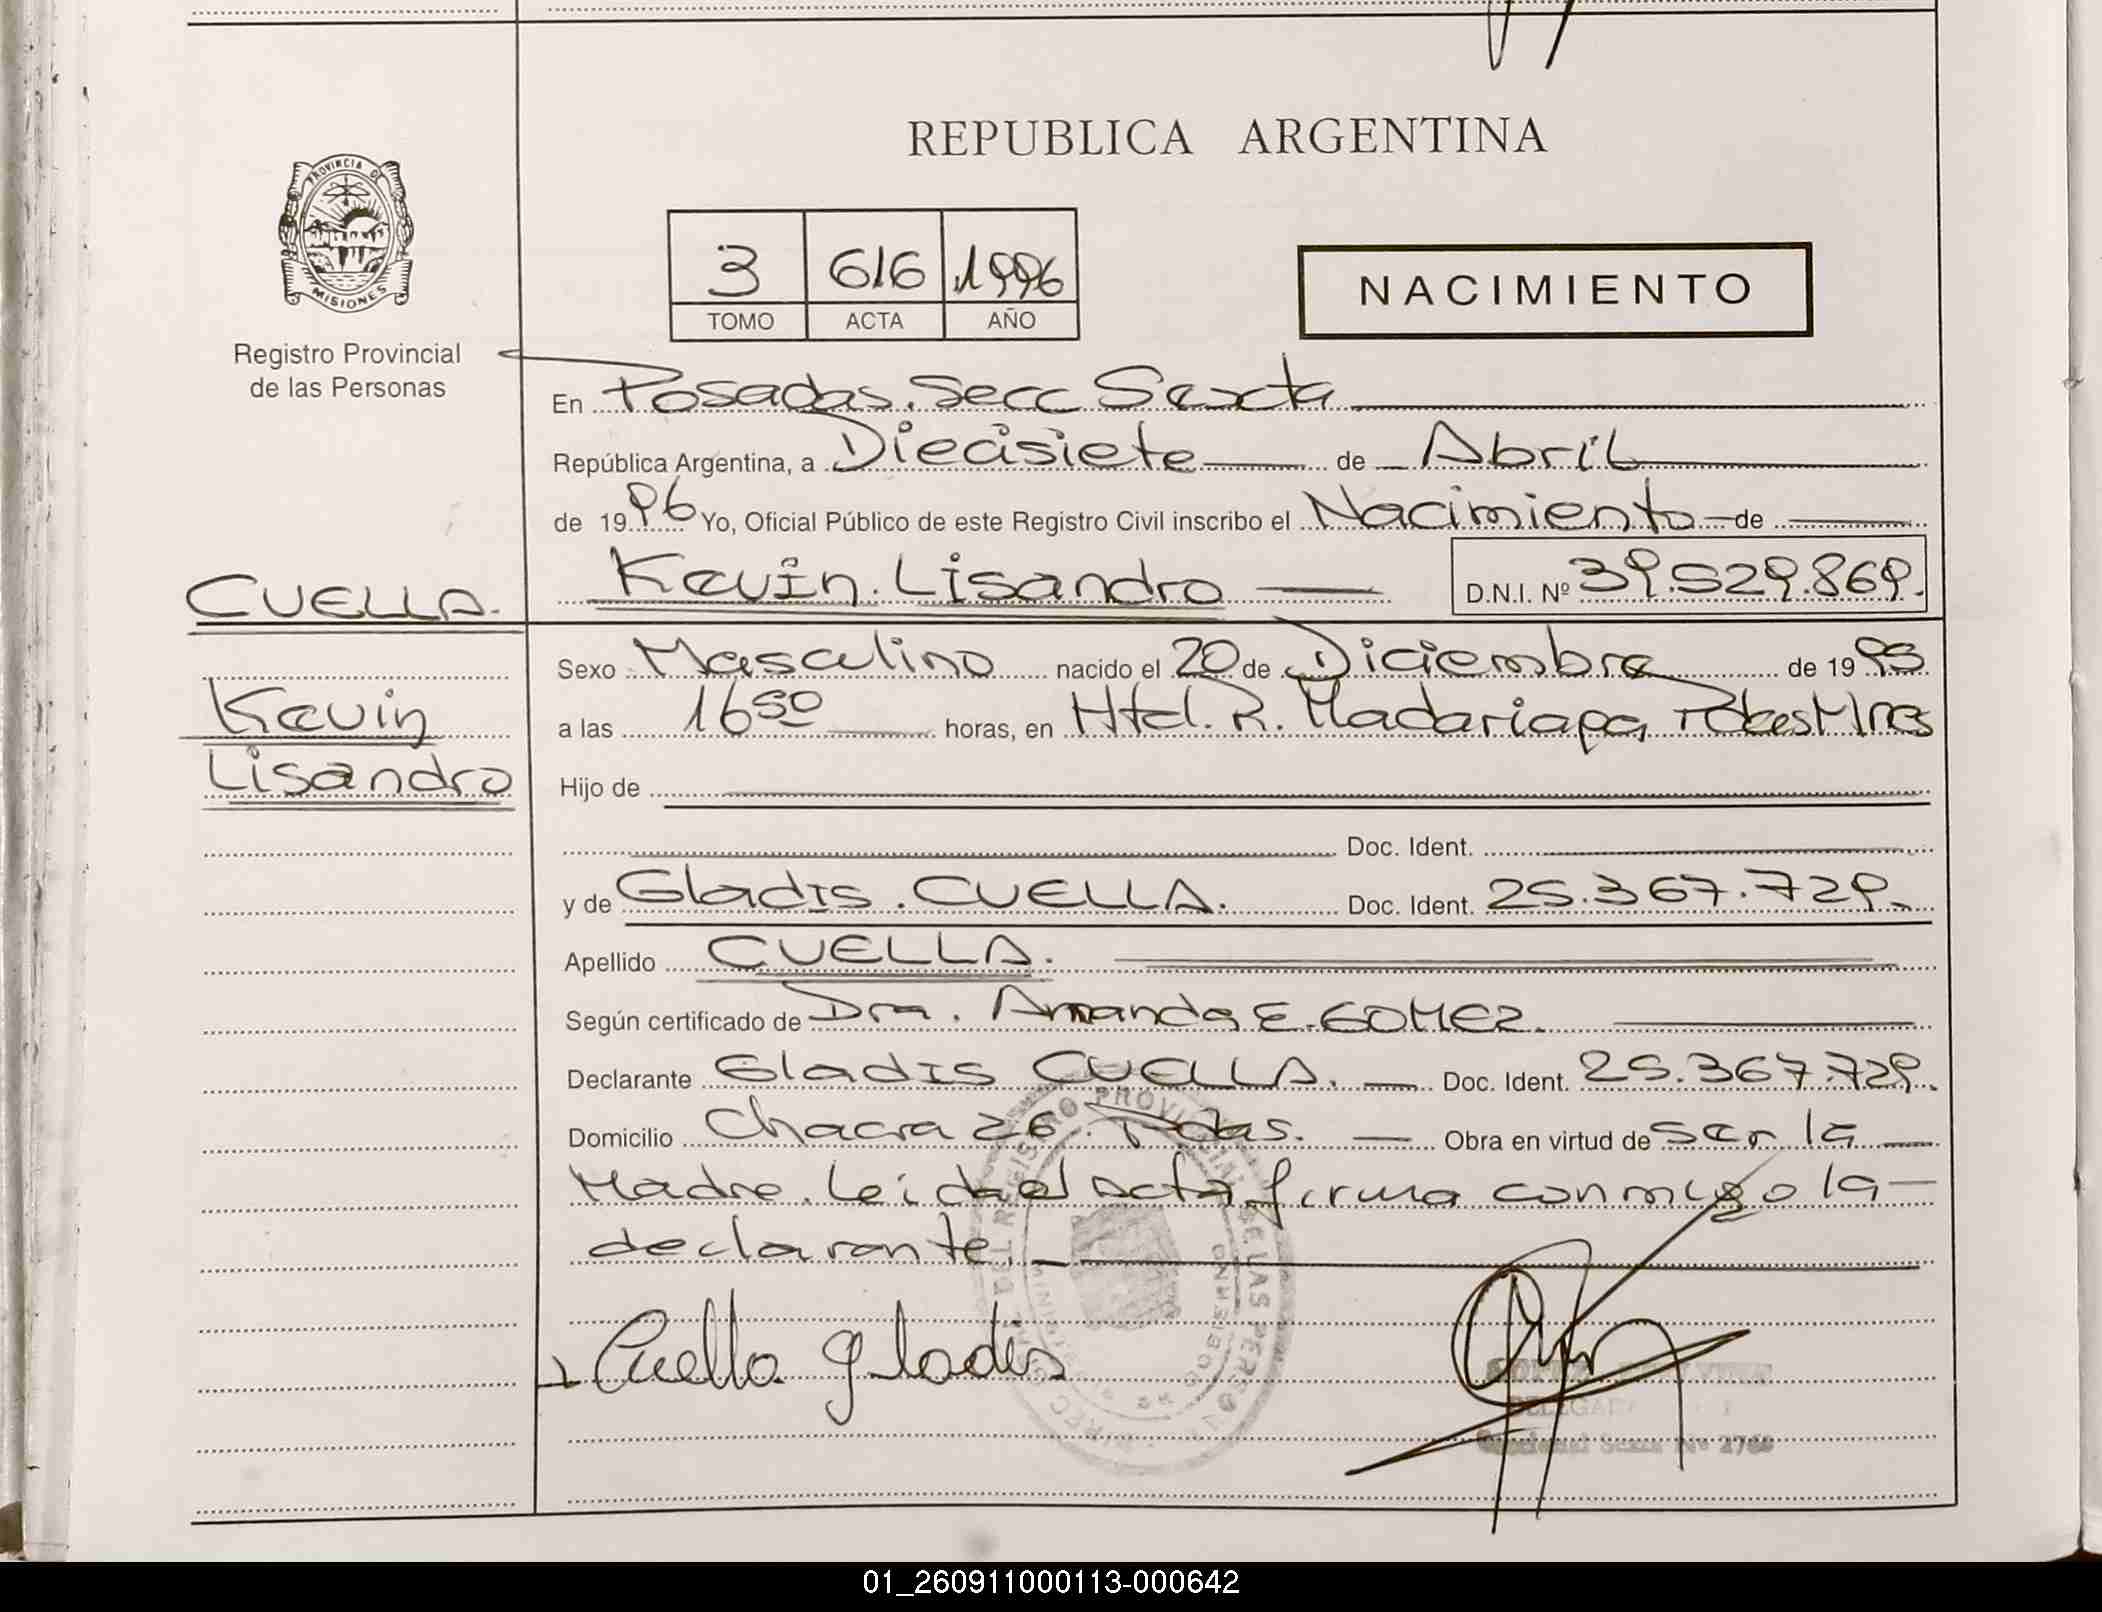 REPUBLICA ARGENTINA
PROVINCIA DE
MISIONES
Registro Provincial
de las Personas
3 616 1996
TOMO ACTA AÑO
NACIMIENTO
En Posadas. Secc Sexta
República Argentina, a Diecisiete de Abril
de 1996 Yo, Oficial Público de este Registro Civil inscribo el Nacimiento de
Kevin Lisandro D.N.I. Nº 39.529.869.
CUELLA.
Kevin
Lisandro
Sexo Masculino nacido el 20 de Diciembre de 1995
a las 16 50 horas, en Htal. R. Madariaga, Pdas Mnes
Hijo de
Doc. Ident.
y de Gladis. CUELLA. Doc. Ident. 25.367.729.
Apellido CUELLA.
Según certificado de Dra. Amanda E. GOMEZ.
Declarante Gladis CUELLA. Doc. Ident. 25.367.729.
Domicilio Chacra 26. Pdas. Obra en virtud de ser la
Madre. Leida el acta firma conmigo la
declarante
Cuella gladis
01_260911000113-000642